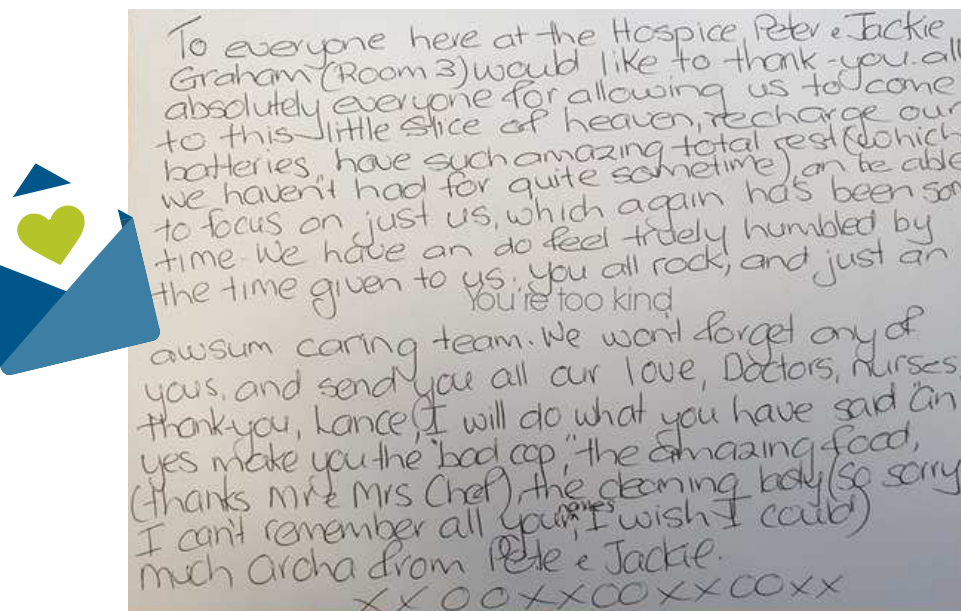 To everyone here at the Hospice, Peter e Jackie
Graham (Room 3) would like to thank-you. all
absolutely everyone for allowing us to come
to this little slice of heaven, recharge our
batteries, have such amazing total rest (which
we haven't had for quite sometime) an be able
to focus on just us, which again has been som
time. We have an do feel truely humbled by
the time given to us. You all rock, and just an
You're too kind
awsum caring team. We wont forget any of
yous, and send you all our love, Doctors, nurses,
thank-you, Lance, (I will do what you have said "an
yes make you the "bad cop," the amazing food,
(thanks mr e mrs Chef), the cleaning lady (so sorry
I can't remember all your names, I wish I could)
much aroha from Pete e Jackie.
XXOOXXOOXXOOXX